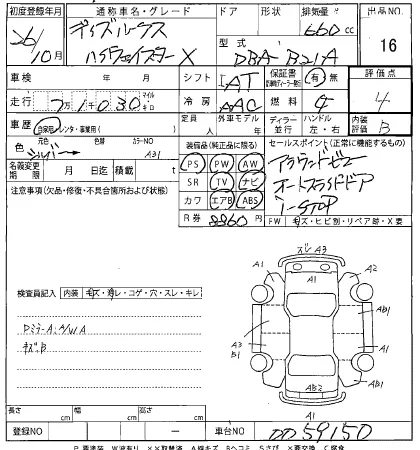 初度登録年月 通称車名・グレード ドア 形状 排気量 出品No.
26/10月 デイズルークス ハイウェイスターX 660cc 16
型式 DBA-B21A
車検 年 月 シフト IAT 保証書 有・無 評価点
走行 7万1千030 キロ マイル 冷房 AAC 燃料 ガ 4
車歴 自家用・レンタ・事業用( ) 定員 人 外車モデル 年 ディーラー 並行 ハンドル 左・右 内装評価 B
色 元色 シルバー 色替 カラーNO A31
装備品(純正品に限る) セールスポイント(正常に機能するもの)
名義変更期限 月 日迄 積載 t
PS PW AW アラウンドビュー
SR TV ナビ オートスライドドア
カワ エアB ABS I-STOP
注意事項(欠品・修復・不具合箇所および状態)
R券 8860円 FW キズ・ヒビ割・リペア跡・X要
検査員記入 内装 キズ・汚レ・コゲ・穴・スレ・キレ
キズ.B
ズレ A3
A1 A2
A1 AB1
A3
B1 A1
A1 AB1
AB2
A1
長さ cm 幅 cm 高さ cm
登録NO － 車台NO 59150